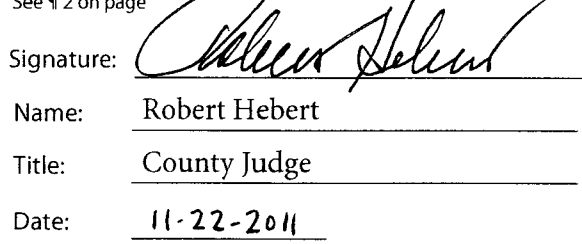 See ¶ 2 on page
Signature: Robert Hebert
Name: Robert Hebert
Title: County Judge
Date: 11-22-2011